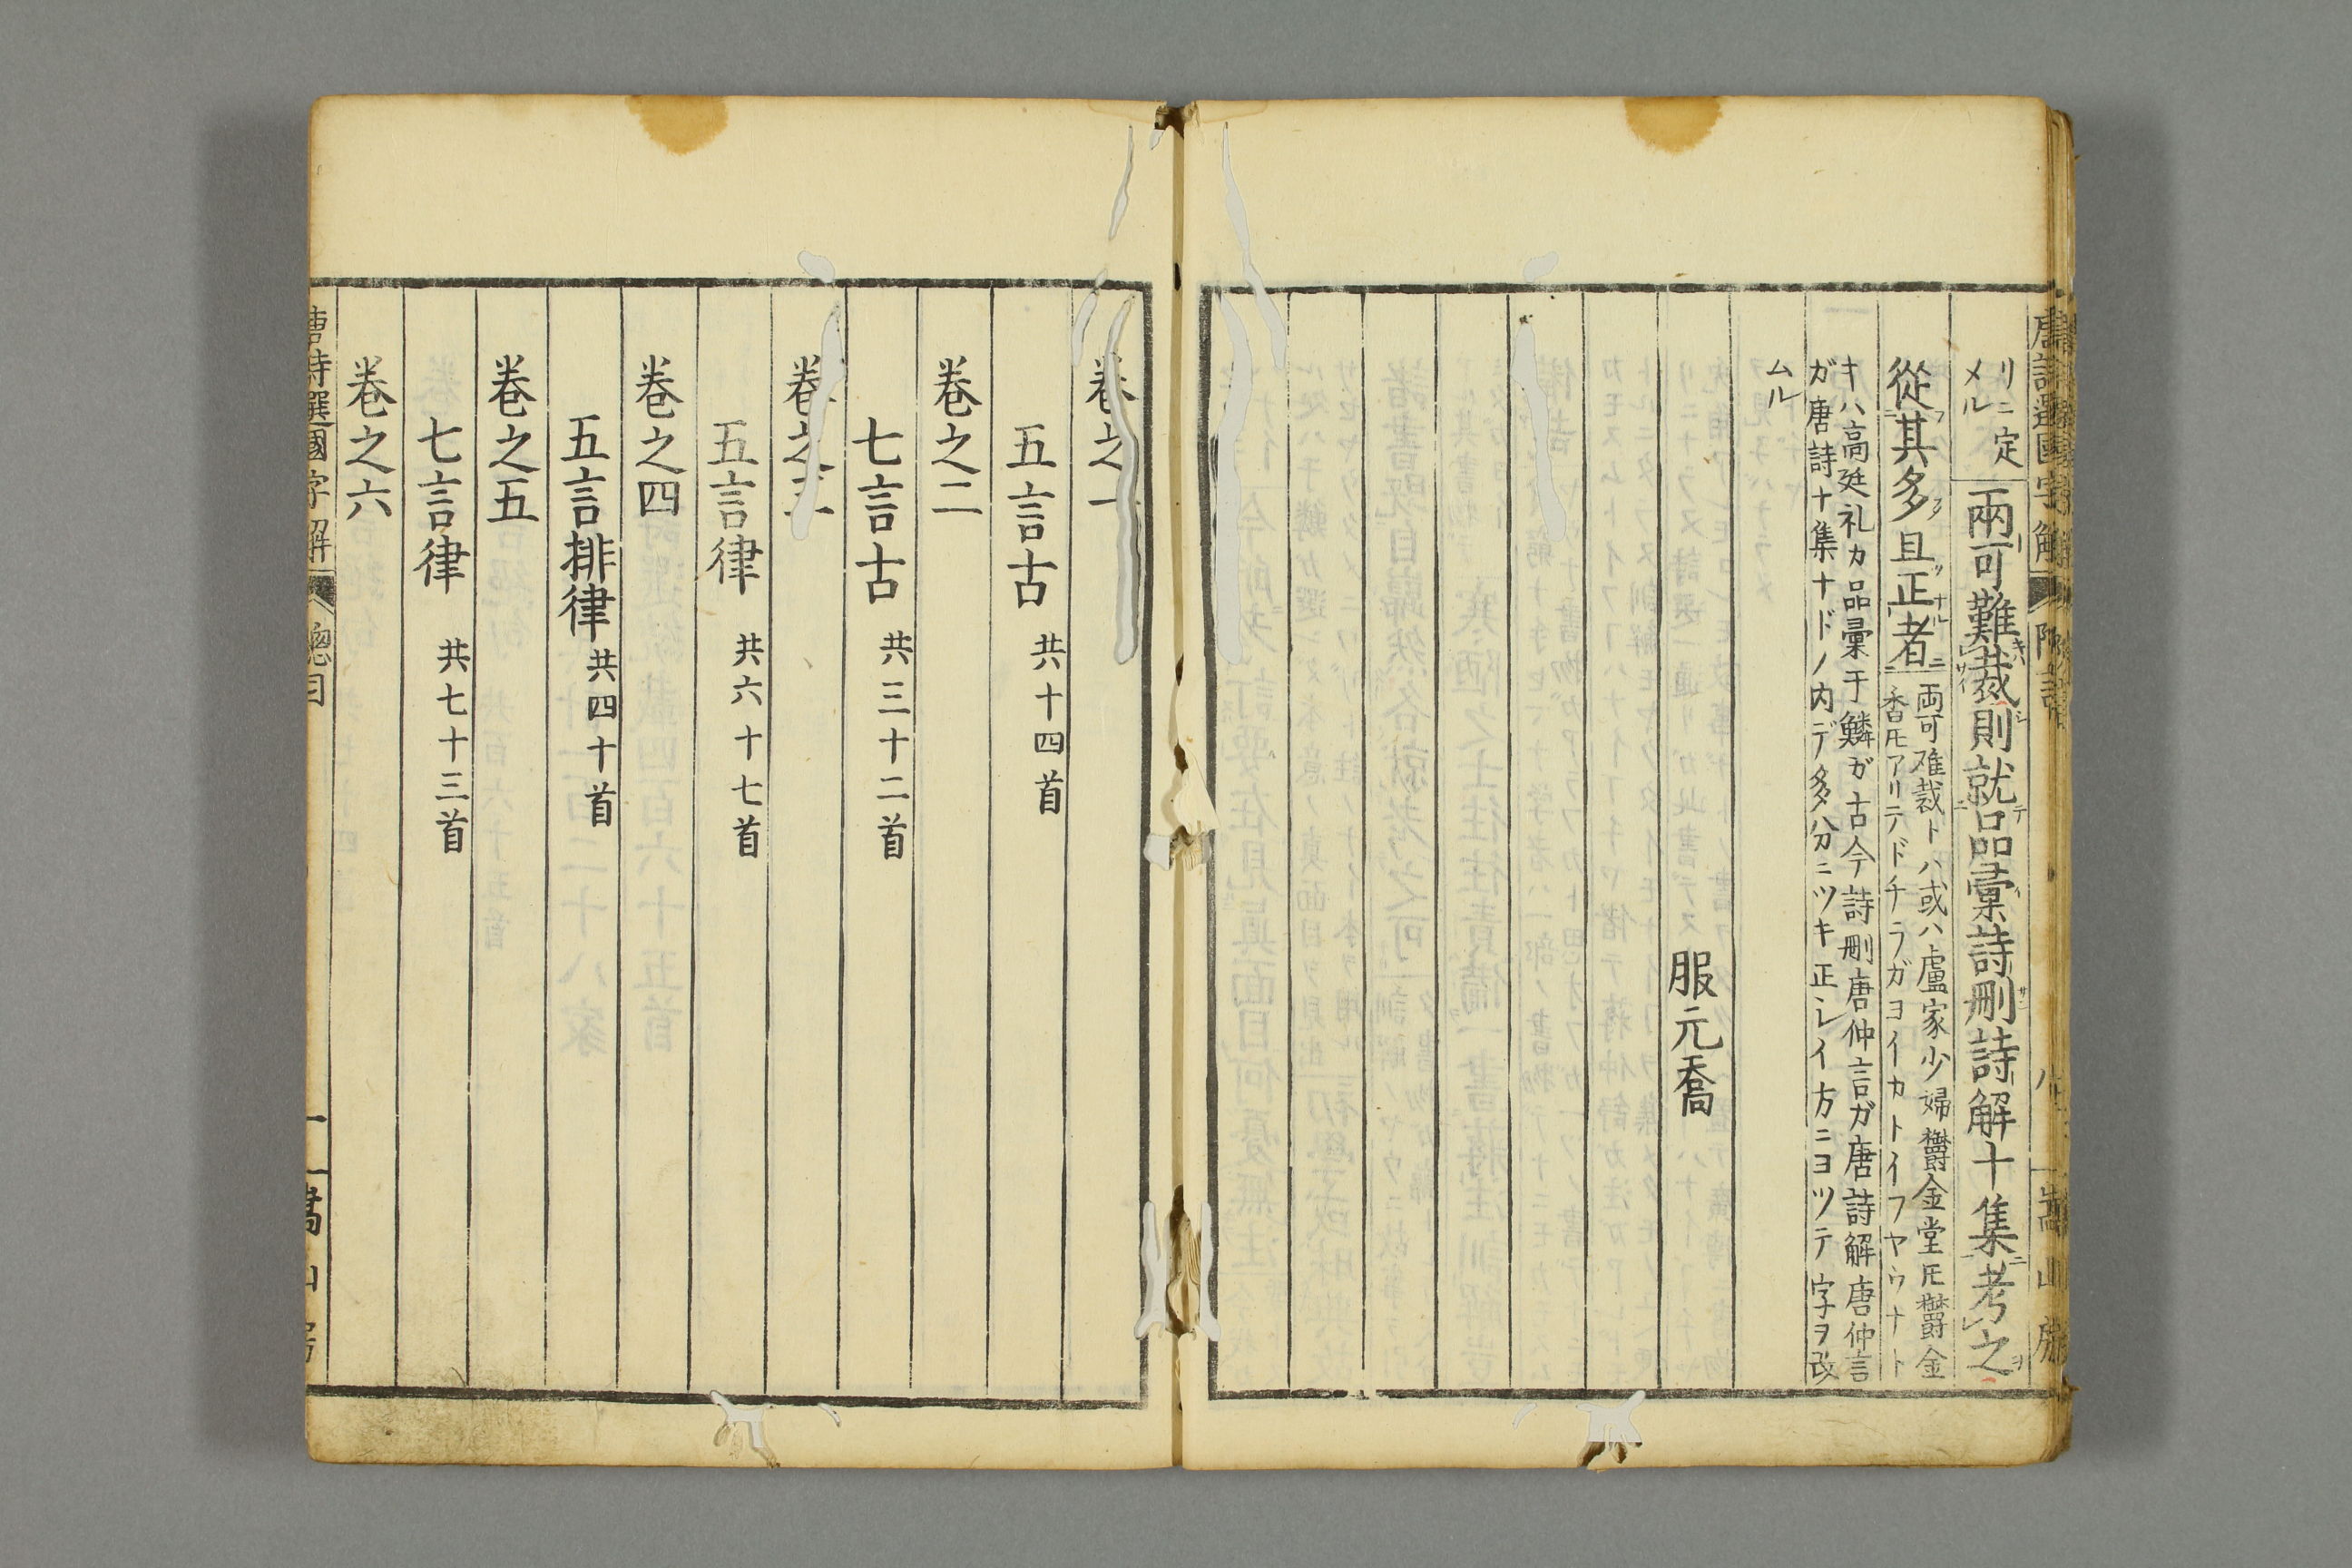 リニ定
メル
兩可難裁則就品彙詩刪詩解十集考之
從其多且正者
両可难裁トハ或ハ盧家少婦欝金堂𪜈欝金
香𪜈アリテドチラガヨイカトイフヤウナト
キハ高廷礼カ品彙于鱗ガ古今詩刪唐仲言ガ唐詩解唐仲言
ガ唐詩十集ナドノ内デ多分ニツキ正シイ方ニヨツテ字ヲ改
ムル
服元喬
卷之一
五言古 共十四首
卷之二
七言古 共三十二首
卷之三
五言律 共六十七首
卷之四
五言排律 共四十首
卷之五
七言律 共七十三首
卷之六
唐詩選國字解 總目 一